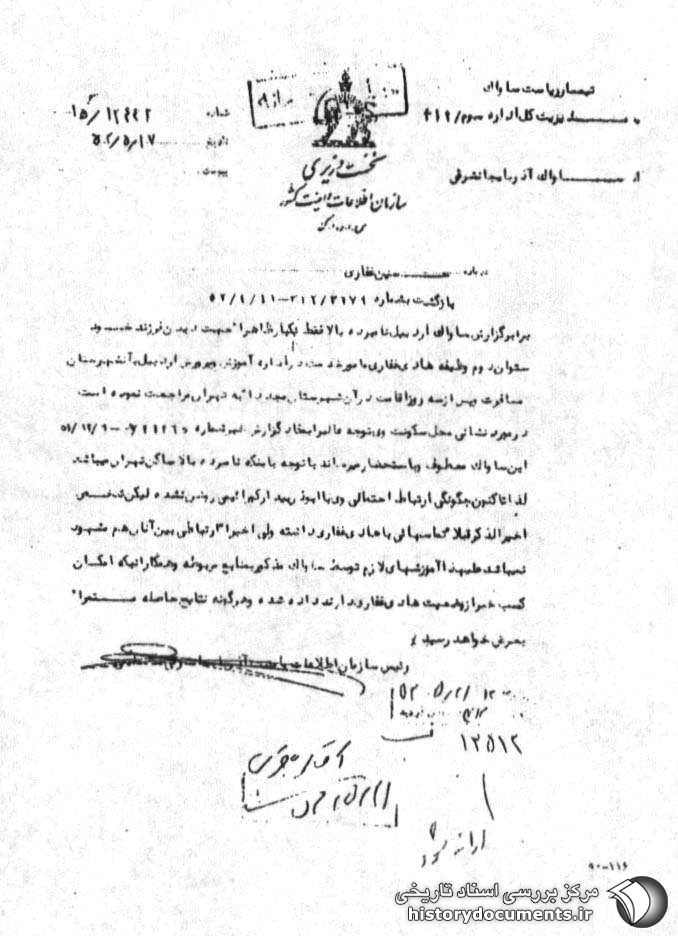 تیمسار ریاست ساواک
به مدیریت کل اداره سوم / ۳۱۲
از ساواک آذربایجانشرقی
شماره ۱۲۶۶۲ / ۱۵
تاریخ ۵۲/۵/۱۷
پیوست
نخست وزیری
سازمان اطلاعات و امنیت کشور
درباره حسین غفاری
بازگشت بشماره ۳۱۲/۳۱۷۹ - ۵۲/۱/۱۱
برابر گزارش ساواک اردبیل نامبرده بالا فقط یکبار ظاهراً جهت دیدن فرزند خود
ستوان دوم وظیفه هادی غفاری مامور خدمت در اداره آموزش و پرورش اردبیل بآنشهرستان
مسافرت و پس از سه روز اقامت در آن شهرستان مجدداً به تهران مراجعت نموده است
در مورد نشانی محل سکونت وی توجه عالی را بمفاد گزارش خبر شماره
این ساواک معطوف و باستحضار میرساند با توجه باینکه نامبرده بالا ساکن تهران میباشد
لذا تاکنون چگونگی ارتباط احتمالی وی با روشن نشده لیکن شخص
اخیرالذکر قبلاً تماسهائی با هادی غفاری داشته ولی اخیراً ارتباطی بین آنان هم مشهود
نمیباشد علیهذا آموزشهای لازم توسط ساواک مذکور بمنابع مربوطه و همکارانیکه امکان
کسب خبر از وضعیت هادی غفاری دارند داده شده و هرگونه نتایج حاصله مستمراً
بعرض خواهد رسید
رئیس سازمان اطلاعات و امنیت آذربایجان
۱۲۵۱۲
ارائه شود
۹۰-۱۱۶
مرکز بررسی اسناد تاریخی
historydocuments.ir